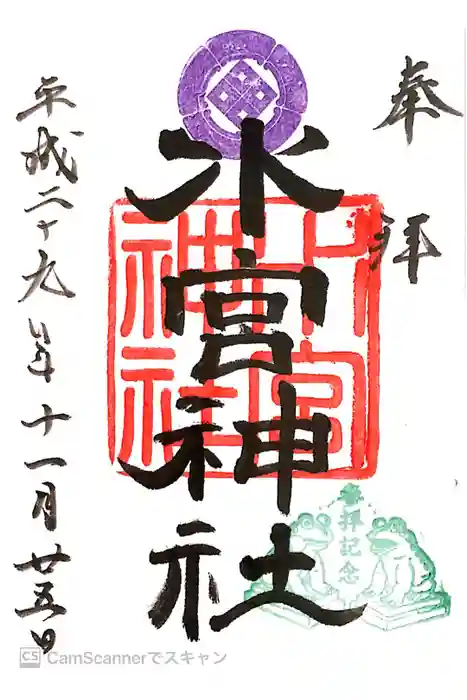 奉拝
水宮神社
平成二十九年十一月廿五日
水宮神社
参拝記念
CS CamScannerでスキャン